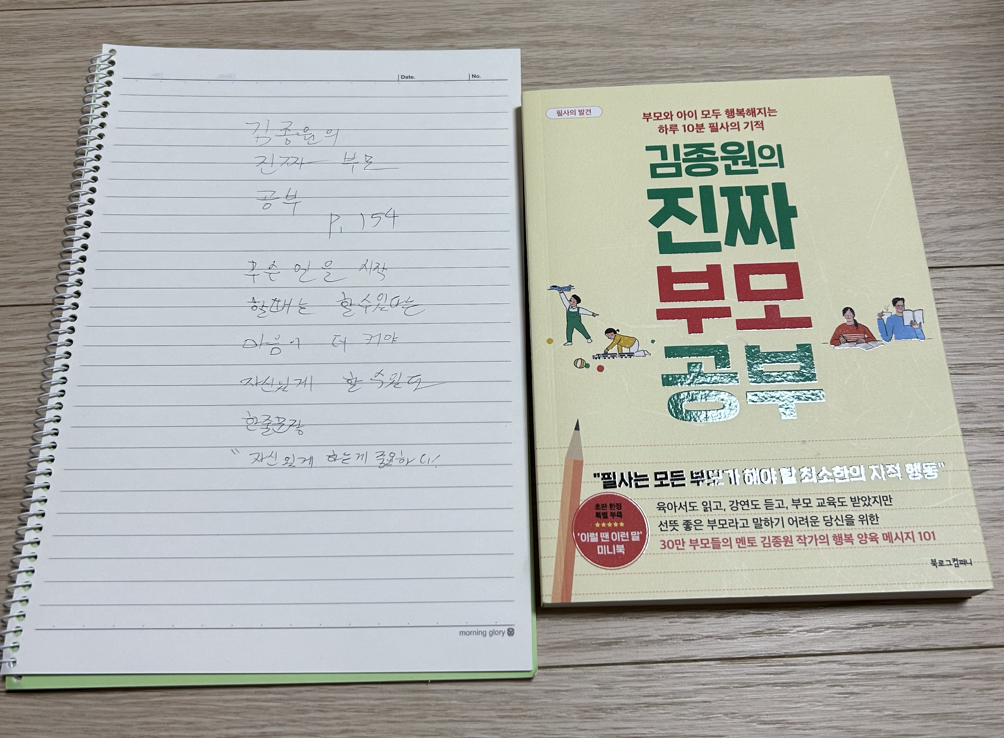 Date.
No.
김종원의
진짜 부모
공부
P. 154
무슨 일을 시작
할때는 할수있다는
마음이 더 커야
자신있게 할 수있다
한줄문장
"자신있게 하는게 중요하다!
morning glory
필사의 발견
부모와 아이 모두 행복해지는
하루 10분 필사의 기적
김종원의
진짜
부모
공부
"필사는 모든 부모가 해야 할 최소한의 지적 행동"
육아서도 읽고, 강연도 듣고, 부모 교육도 받았지만
선뜻 좋은 부모라고 말하기 어려운 당신을 위한
30만 부모들의 멘토 김종원 작가의 행복 양육 메시지 101
초판 한정
특별 부록
'이럴 땐 이런 말'
미니북
북로그컴퍼니